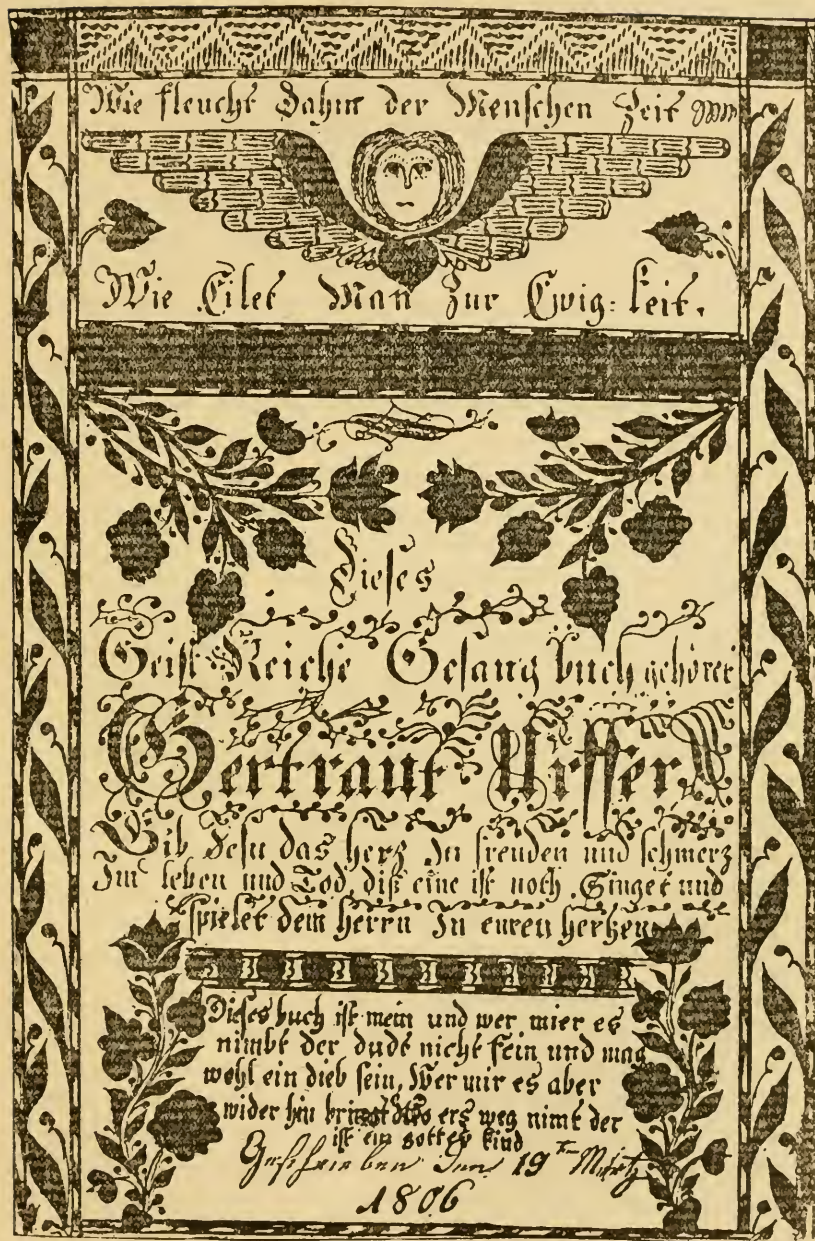 Wie fleucht Dahin der Menschen Zeit
Wie Eilet Man Zur Ewig: keit.
Dieses
Geist-Reiche Gesang buch gehöret
Gertraut Urffer
Gib Jesu das herz In freuden und schmerz
Im leben und Tod, diß eine ist noth Singet und
spielet dem herrn In euren hertzen
Dieses buch ist mein und wer mier es
nimbt der dudt nicht fein und mag
wohl ein dieb sein, Wer mir es aber
wider hin bringt ers weg nimt der
ist ein gottes kind
Geschrieben den 19ten Mertz
1806